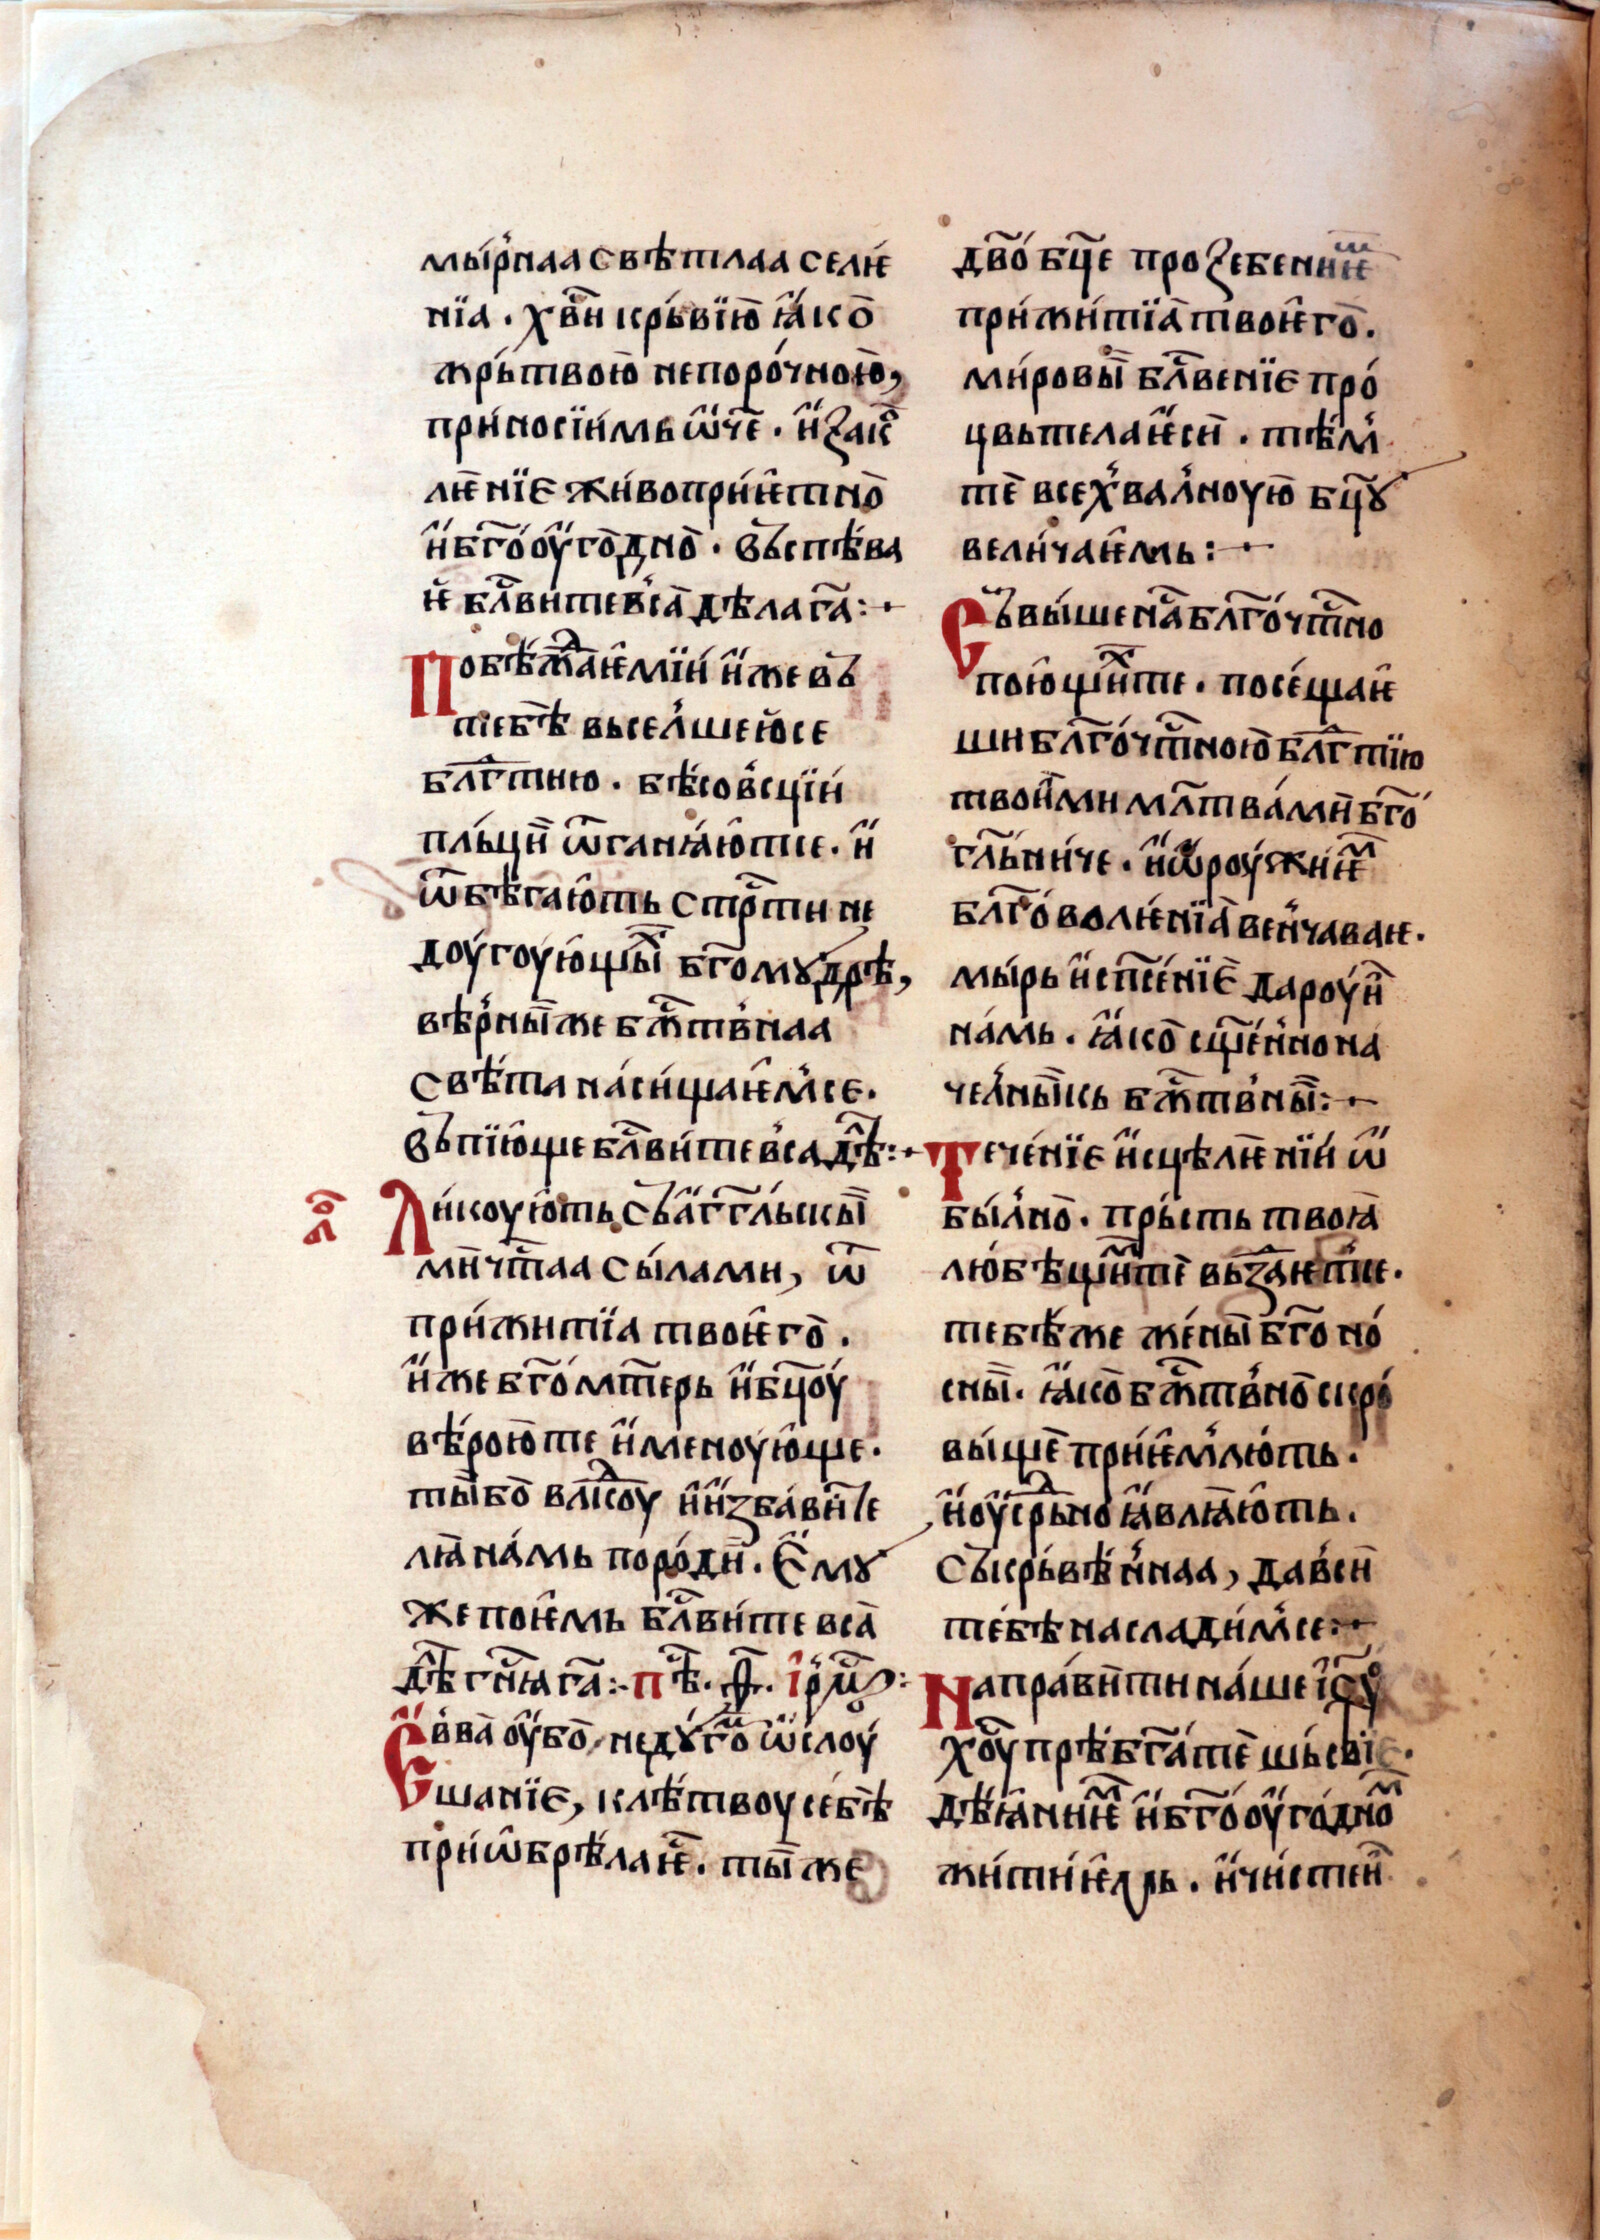 мы́рнаа свѣтлаа селѥ́
нїа . хв҃и крь́вїю ꙗ҆́ко
жрь́твою непоро́чною,
прино́сїимь ѡ҆́ч҃е . и҆́закⷪ
лѥ́нїе жи́вопрїи҆ѥтно
и҆́ бг҃оу҆го́дно . въспѣ́ва
ѥ бл҃ви́те всⷭ҇а дѣла г҃а :·
Побѣждⷣаѥмїи и҆́же въ
тебѣ вьсе́лшеюсе
блгⷣтию . бѣсо́всцїи
пль́ци ѿга́нꙗ́ютсе . и҆́
ѿбѣга́ють стрⷭ҇ти не
доу́гоующы́хъ бг҃омꙋдрѣ,
вѣ́рныⷨже бжⷭ҇твнаа
свѣ́та на́сищаѥмсе .
въпїю́ще бл҃ви́те вса дѣⷧ҇ :·
бⷪ҇
Ли́коують съ а҆́гг҃льскы
ми чтⷭ҇аа сы́лами, ѿ
при́житїа твоѥго .
и҆́же бг҃омт҃ерь и҆́ бц҃оу
вѣ́рою те и҆́меноую́ще .
ты́ бо вл҃ⷣкоу и҆́ и҆збави́те
лꙗ на́мь поро́ди . Е҆́мꙋ
же поѥ́мь бл҃ви́те вса
дѣⷧ҇ гн҃ꙗ г҃а :· пѣⷭ҇ . ѳ҃ . і҆рмⷭ҇ :
Е҆́вва оу҆́бо недꙋ́гоⷨ ѡ҆слоу́
шанїе, клѣ́твоу себѣ
при́ѡбрѣ́ла ѥⷭ҇ . ты́ же
дв҃о бц҃е прозебениѥⷨ
при́житїа твоѥго .
ми́ровы бл҃ве́нїе про́
цвьтела ѥси . тѣ́м
те всехва́лноую бц҃ꙋ
вели́чаѥмь :·
Съвы́ше на блг҃очтⷭ҇но
пою́щихте . посе́щаѥ
ши блг҃очтⷭ҇ною блгⷣтїю
твои́ми мл҃тва́ми бг҃о
гль́ниче . и҆́ ѡ҆роу́жиѥⷨ
блг҃оволѥ́нїа вен́чаваѥ .
мы́рь и҆ сп҃се́нїе дароу́и
на́мь . ꙗ҆́ко сщ҃е́нно на
че́лныкь бжⷭ҇твны :·
Тече́нїе и҆сцѣлѥ́нїи ѿ
бы́лно . прь́сть твоꙗ
лю́бѣщимте вьздⷣаѥтсе .
тебѣ́же жены́ бг҃оно́
сны . ꙗ҆́ко бжⷭ҇твно скро́
вы́ще прїи҆ѥмлють .
и҆́ оу҆срⷣьно ꙗ҆́влꙗ́ють .
съкрьвѣ́ннаа, да вси
те́бѣ насладимсе :·
Напра́ви ти на́ше і҆с҃оу
хо҃у прѣбг҃ате шьсвїе .
дѣꙗ́ниѥⷨ и҆́ бг҃оу҆го́дноⷨ
жи́тиѥмь . и҆́ чи́стеи